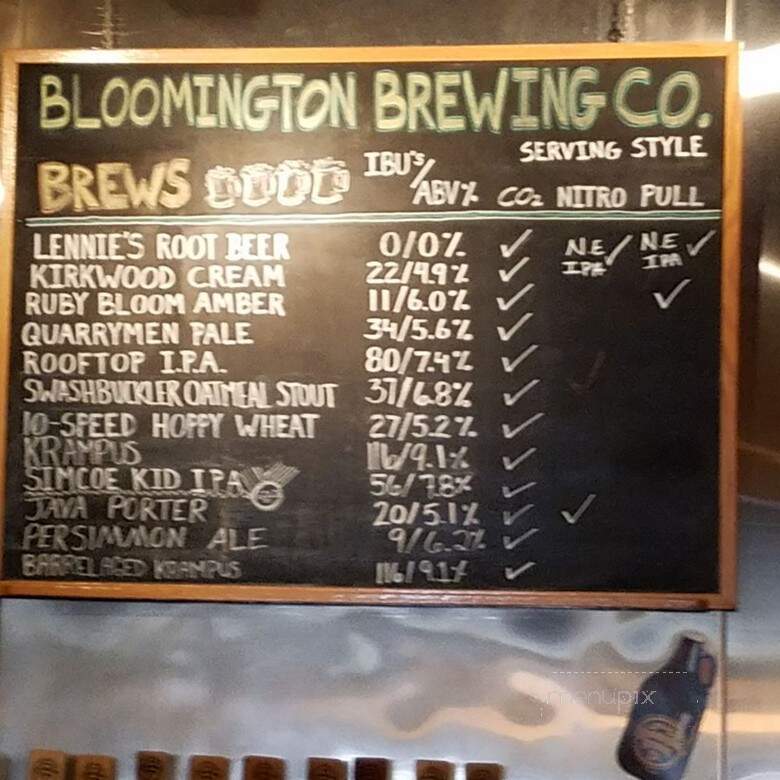 BLOOMINGTON BREWING CO.
SERVING STYLE
BREWS IBU's/ABV% CO2 NITRO PULL
LENNIE'S ROOT BEER 0/0% ✓ N.E IPA ✓ N.E IPA ✓
KIRKWOOD CREAM 22/4.9% ✓
RUBY BLOOM AMBER 11/6.0% ✓ ✓
QUARRYMEN PALE 34/5.6% ✓
ROOFTOP I.P.A. 80/7.4% ✓
SWASHBUCKLER OATMEAL STOUT 37/6.8% ✓
10-SPEED HOPPY WHEAT 27/5.2% ✓
KRAMPUS 116/9.1% ✓
SIMCOE KID IPA 56/7.8% ✓
JAVA PORTER 20/5.1% ✓ ✓
PERSIMMON ALE 9/6.2% ✓
BARREL AGED KRAMPUS 116/9.1% ✓
menupix